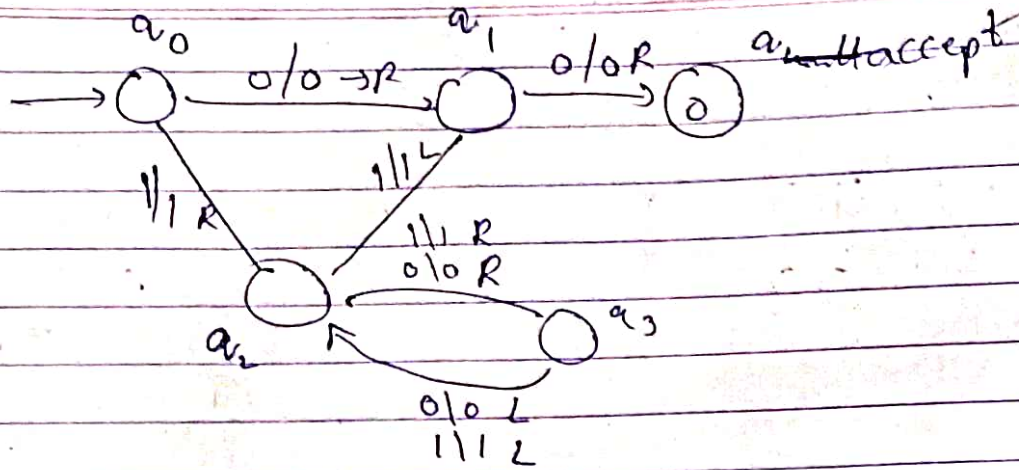 q0 q1
0/0 →R 0/0R accept
0
1/1 R 1/1 L
1/1 R
0/0 R
q2 q3
0/0 L
1/1 L